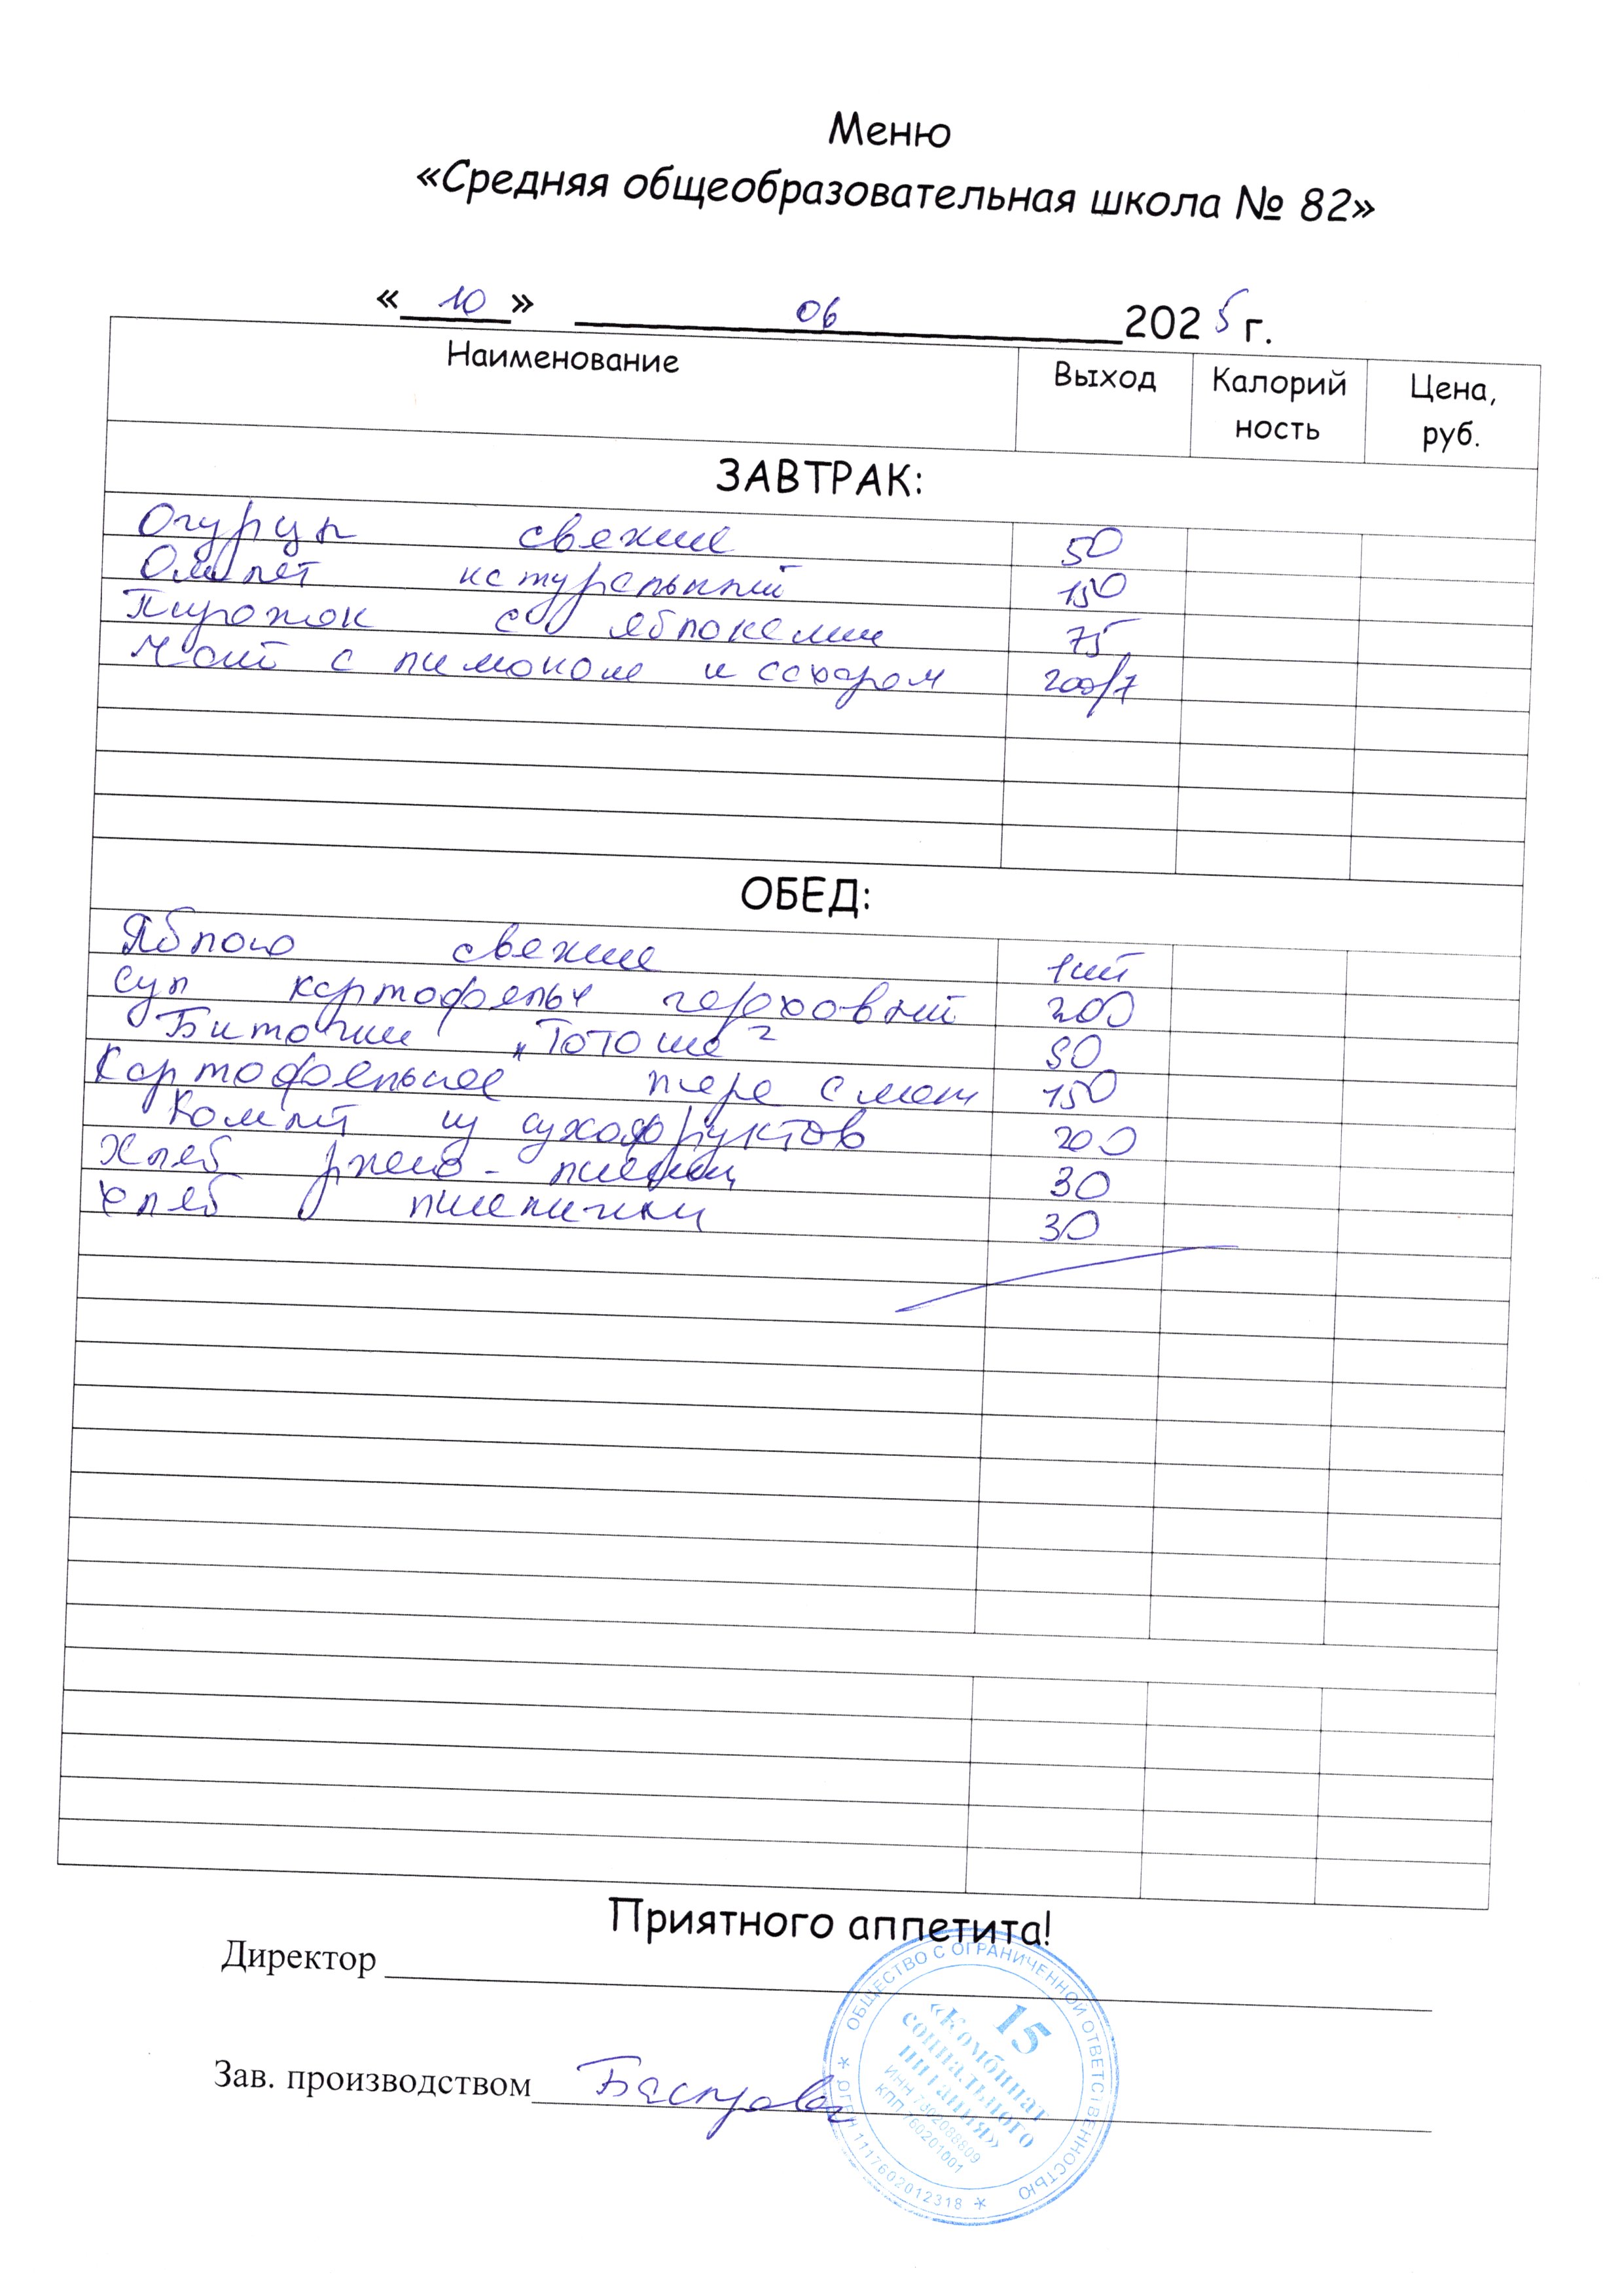 Меню
«Средняя общеобразовательная школа № 82»
« 10 » 06 2025 г.
Наименование Выход Калорий ность Цена, руб.
ЗАВТРАК:
Огурцы свежие 50
Омлет натуральный 150
Пирожок с яблоками 75
Чай с лимоном и сахаром 200/7
ОБЕД:
Яблоко свежие 1шт
Суп картофельн гороховый 200
Биточки „Тотоша" 90
Картофельное пюре с мол 150
Компот из сухофруктов 200
Хлеб ржано-пшенич 30
Хлеб пшеничн 30
Приятного аппетита!
Директор
Зав. производством
ОБЩЕСТВО С ОГРАНИЧЕННОЙ ОТВЕТСТВЕННОСТЬЮ
15
«Комбинат
социального
питания»
ИНН 7602088609
КПП 760201001
ОГРН 1117602012318